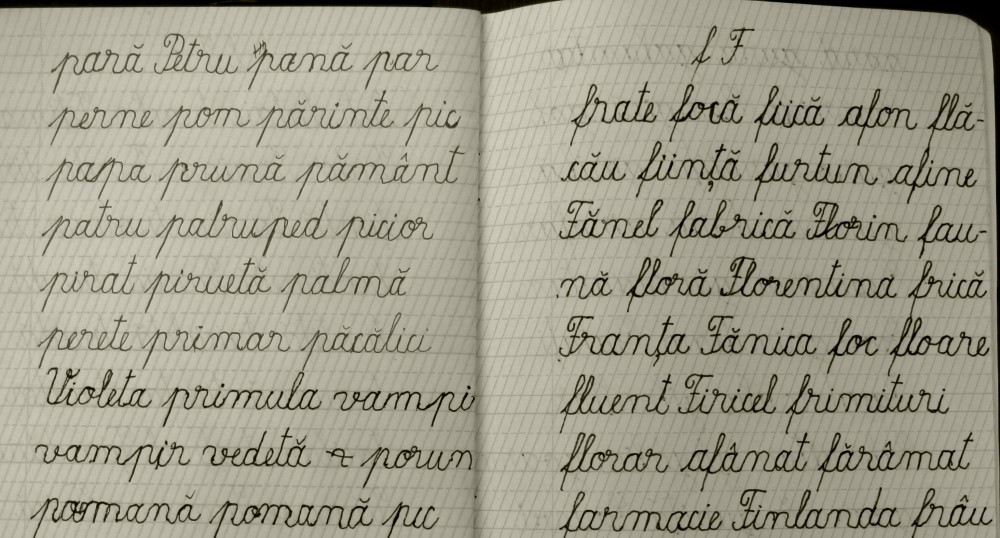 pară Petru pană par
perne pom părinte pic
papa prună pământ
patru patruped picior
pirat piruetă palmă
perete primar păcălici
Violeta primula vampi
vampir vedetă porun
pomană pomană pic
f F
frate focă fiică afon flă-
cău ființă furtun afine
Fănel fabrică Florin fau-
nă floră Florentina frică
Franța Fănica foc floare
fluent Firicel frimituri
florar afânat fărâmat
farmacie Finlanda frâu